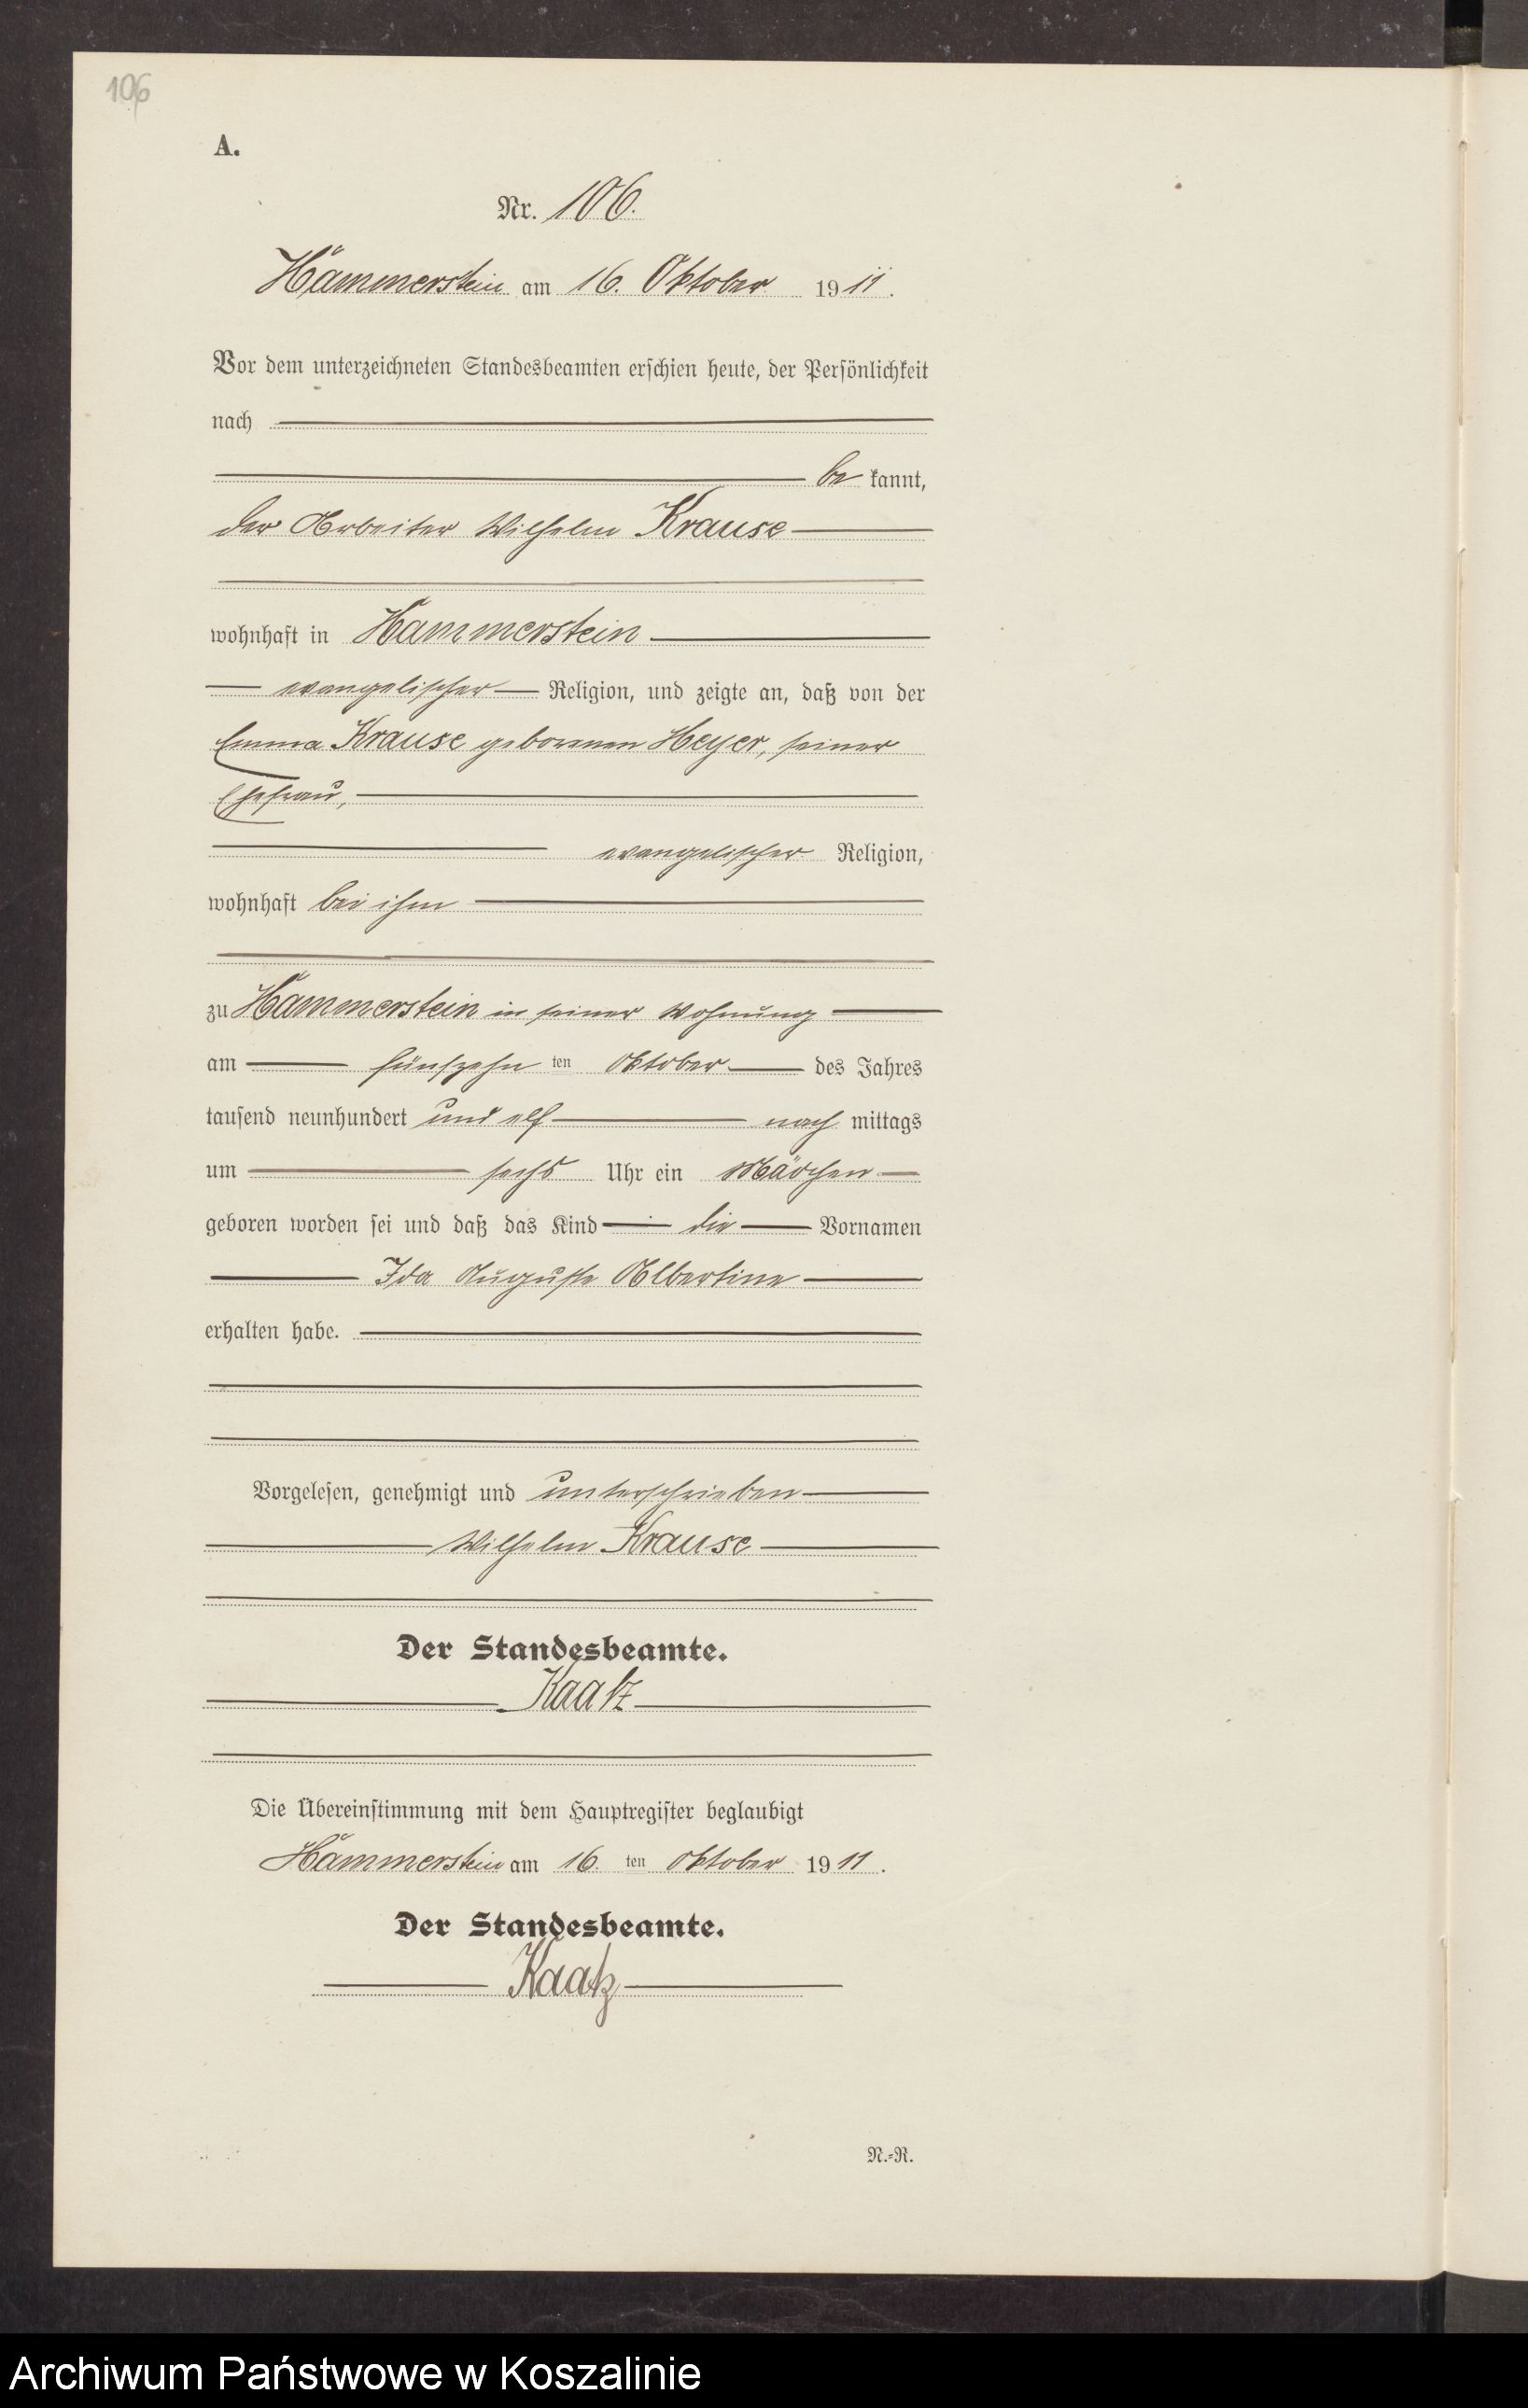 106
A.
Nr. 106.
Hammerstein am 16. Oktober 1911.
Vor dem unterzeichneten Standesbeamten erschien heute, der Persönlichkeit
nach
be kannt,
der Arbeiter Wilhelm Krause
wohnhaft in Hammerstein
evangelischer Religion, und zeigte an, daß von der
Emma Krause geborenen Heyer, seiner
Ehefrau,
evangelischer Religion,
wohnhaft bei ihm
zu Hammerstein in seiner Wohnung
am fünfzehn ten Oktober des Jahres
tausend neunhundert und elf nach mittags
um sechs Uhr ein Mädchen
geboren worden sei und daß das Kind die Vornamen
Ida Auguste Albertine
erhalten habe.
Vorgelesen, genehmigt und unterschrieben
Wilhelm Krause
Der Standesbeamte.
Kaatz
Die Übereinstimmung mit dem Hauptregister beglaubigt
Hammerstein am 16. ten Oktober 1911.
Der Standesbeamte.
Kaatz
N.-R.
Archiwum Państwowe w Koszalinie